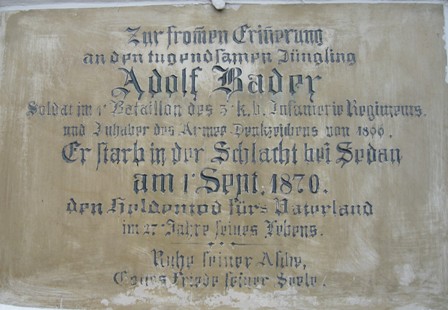 Zur from̅en Erin̅erung
an den tugendsamen Jüngling
Adolf Bader
Soldat im 1. Bataillon des 3. k. b. Infanterie Regiments.
und Inhaber des Armee-Denkzeichens von 1866.
Er starb in der Schlacht bei Sedan
am 1. Sept. 1870.
den Heldentod fürs Vaterland
im 27. Jahre seines Lebens.
Ruhe seiner Asche,
Friede seiner Seele.